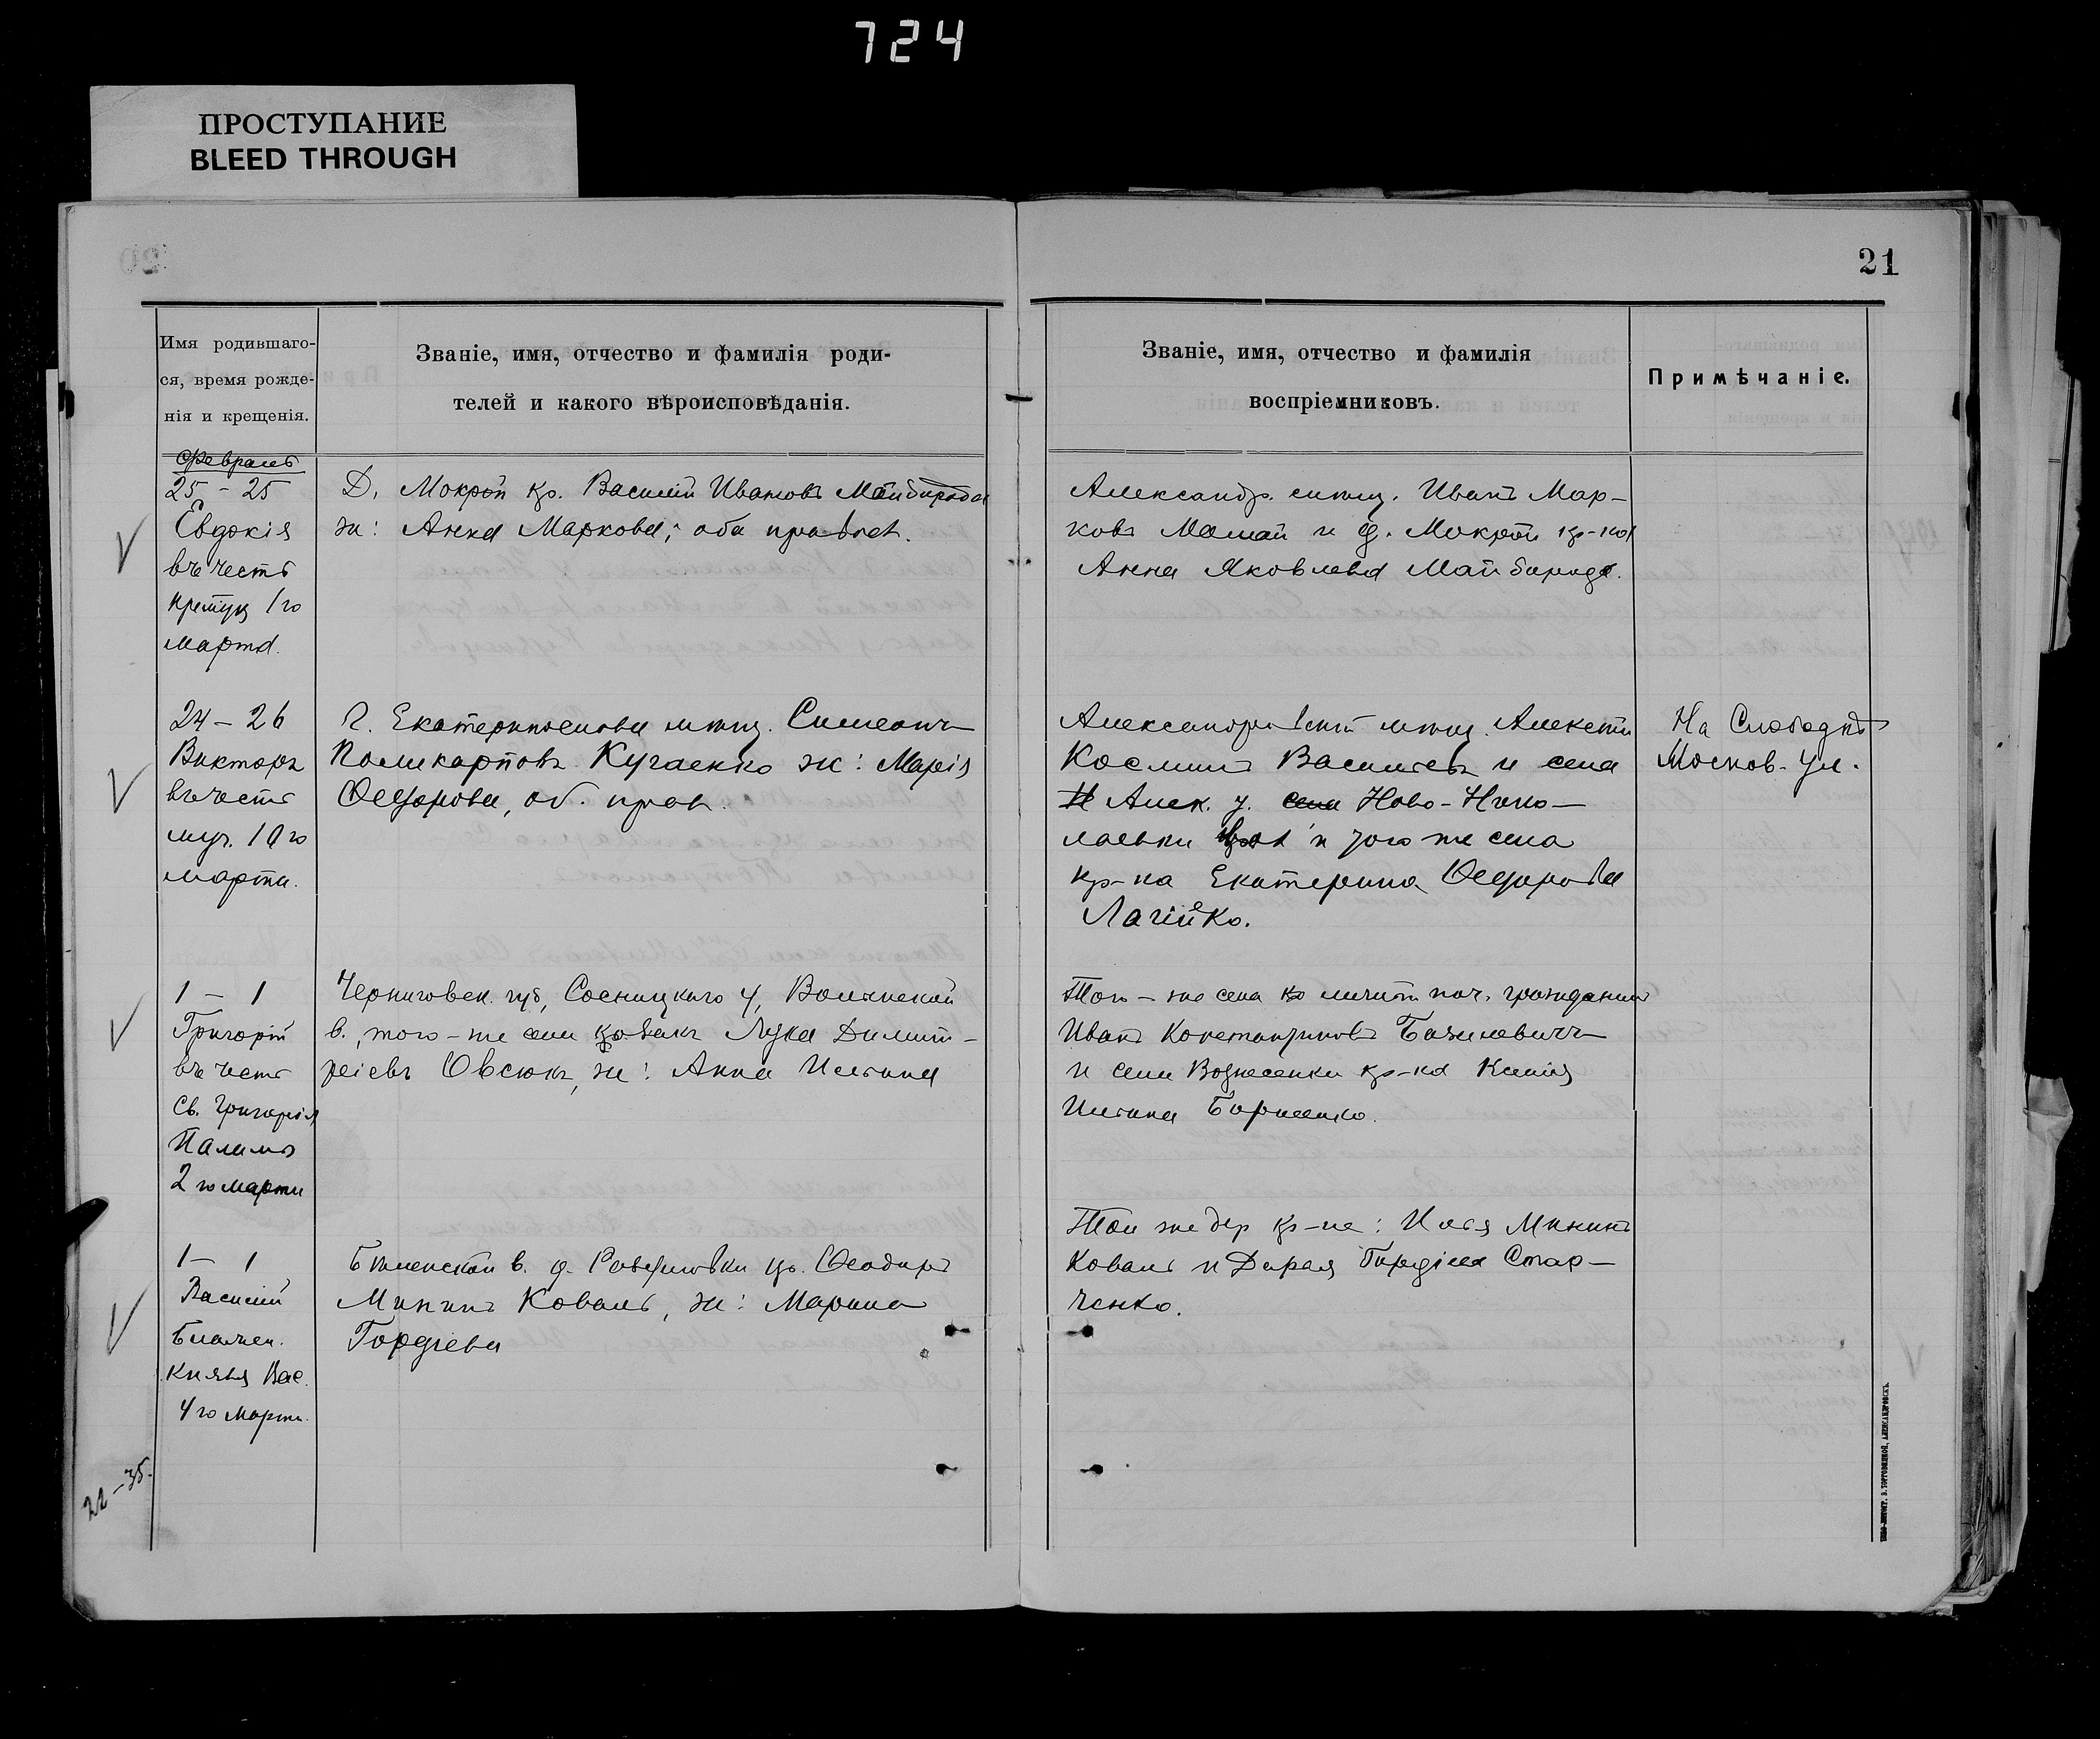 724
ПРОСТУПАНИЕ
BLEED THROUGH
21
Имя родившаго-
ся, время рожде-
нія и крещенія.
Званіе, имя, отчество и фамилія роди-
телей и какого вѣроисповѣданія.
Званіе, имя, отчество и фамилія
воспріемниковъ.
Примѣчаніе.
Февраль
25 - 25
Евдокія
въ честь
1го
марта.
Д. Мокрой кр. Василій Ивановъ Майборода
ж: Анна Маркова; оба правосл.
Александр. мѣщ. Иванъ Мар-
ковъ Мамай и д. Мокрой кр-ка
Анна Яковлева Майборода.
24 - 26
Викторъ
въ честь
муч. 10го
марта.
Г. Екатеринослава мѣщ. Симеонъ
Поликарповъ Кугаенко ж: Марія
Ѳеодорова, об. прав.
Александровскій мѣщ. Алексѣй
Косминъ Васильевъ и села
Н Алек. у. села Ново-Нико-
лаевки и того же села
кр-ка Екатерина Ѳеодорова
Лагійко.
На Слободкѣ
Москов. ул.
1 - 1
Григорій
въ честь
св. Григорія
Палами
2го марта
Черниговск. губ, Сосницкаго у, Волынской
в., того-же села козакъ Лука Димит-
ріевъ Овсюкъ, ж: Анна Ильина
Того-же села личный поч. гражданинъ
Иванъ Константиновъ Базилевичъ
и села Вознесенки кр-ка Ксенія
Ильина Борисенко.
1 - 1
Василій
Благчен.
Князя Вас.
4го Марта.
Бѣленской в. д. кр. Ѳеодоръ
Мининъ Коваль, ж: Марина
Гордіева
Той же дер кр-не: Илья Мининъ
Коваль и Дарья Гордіева Стар-
ченко.
22-35.